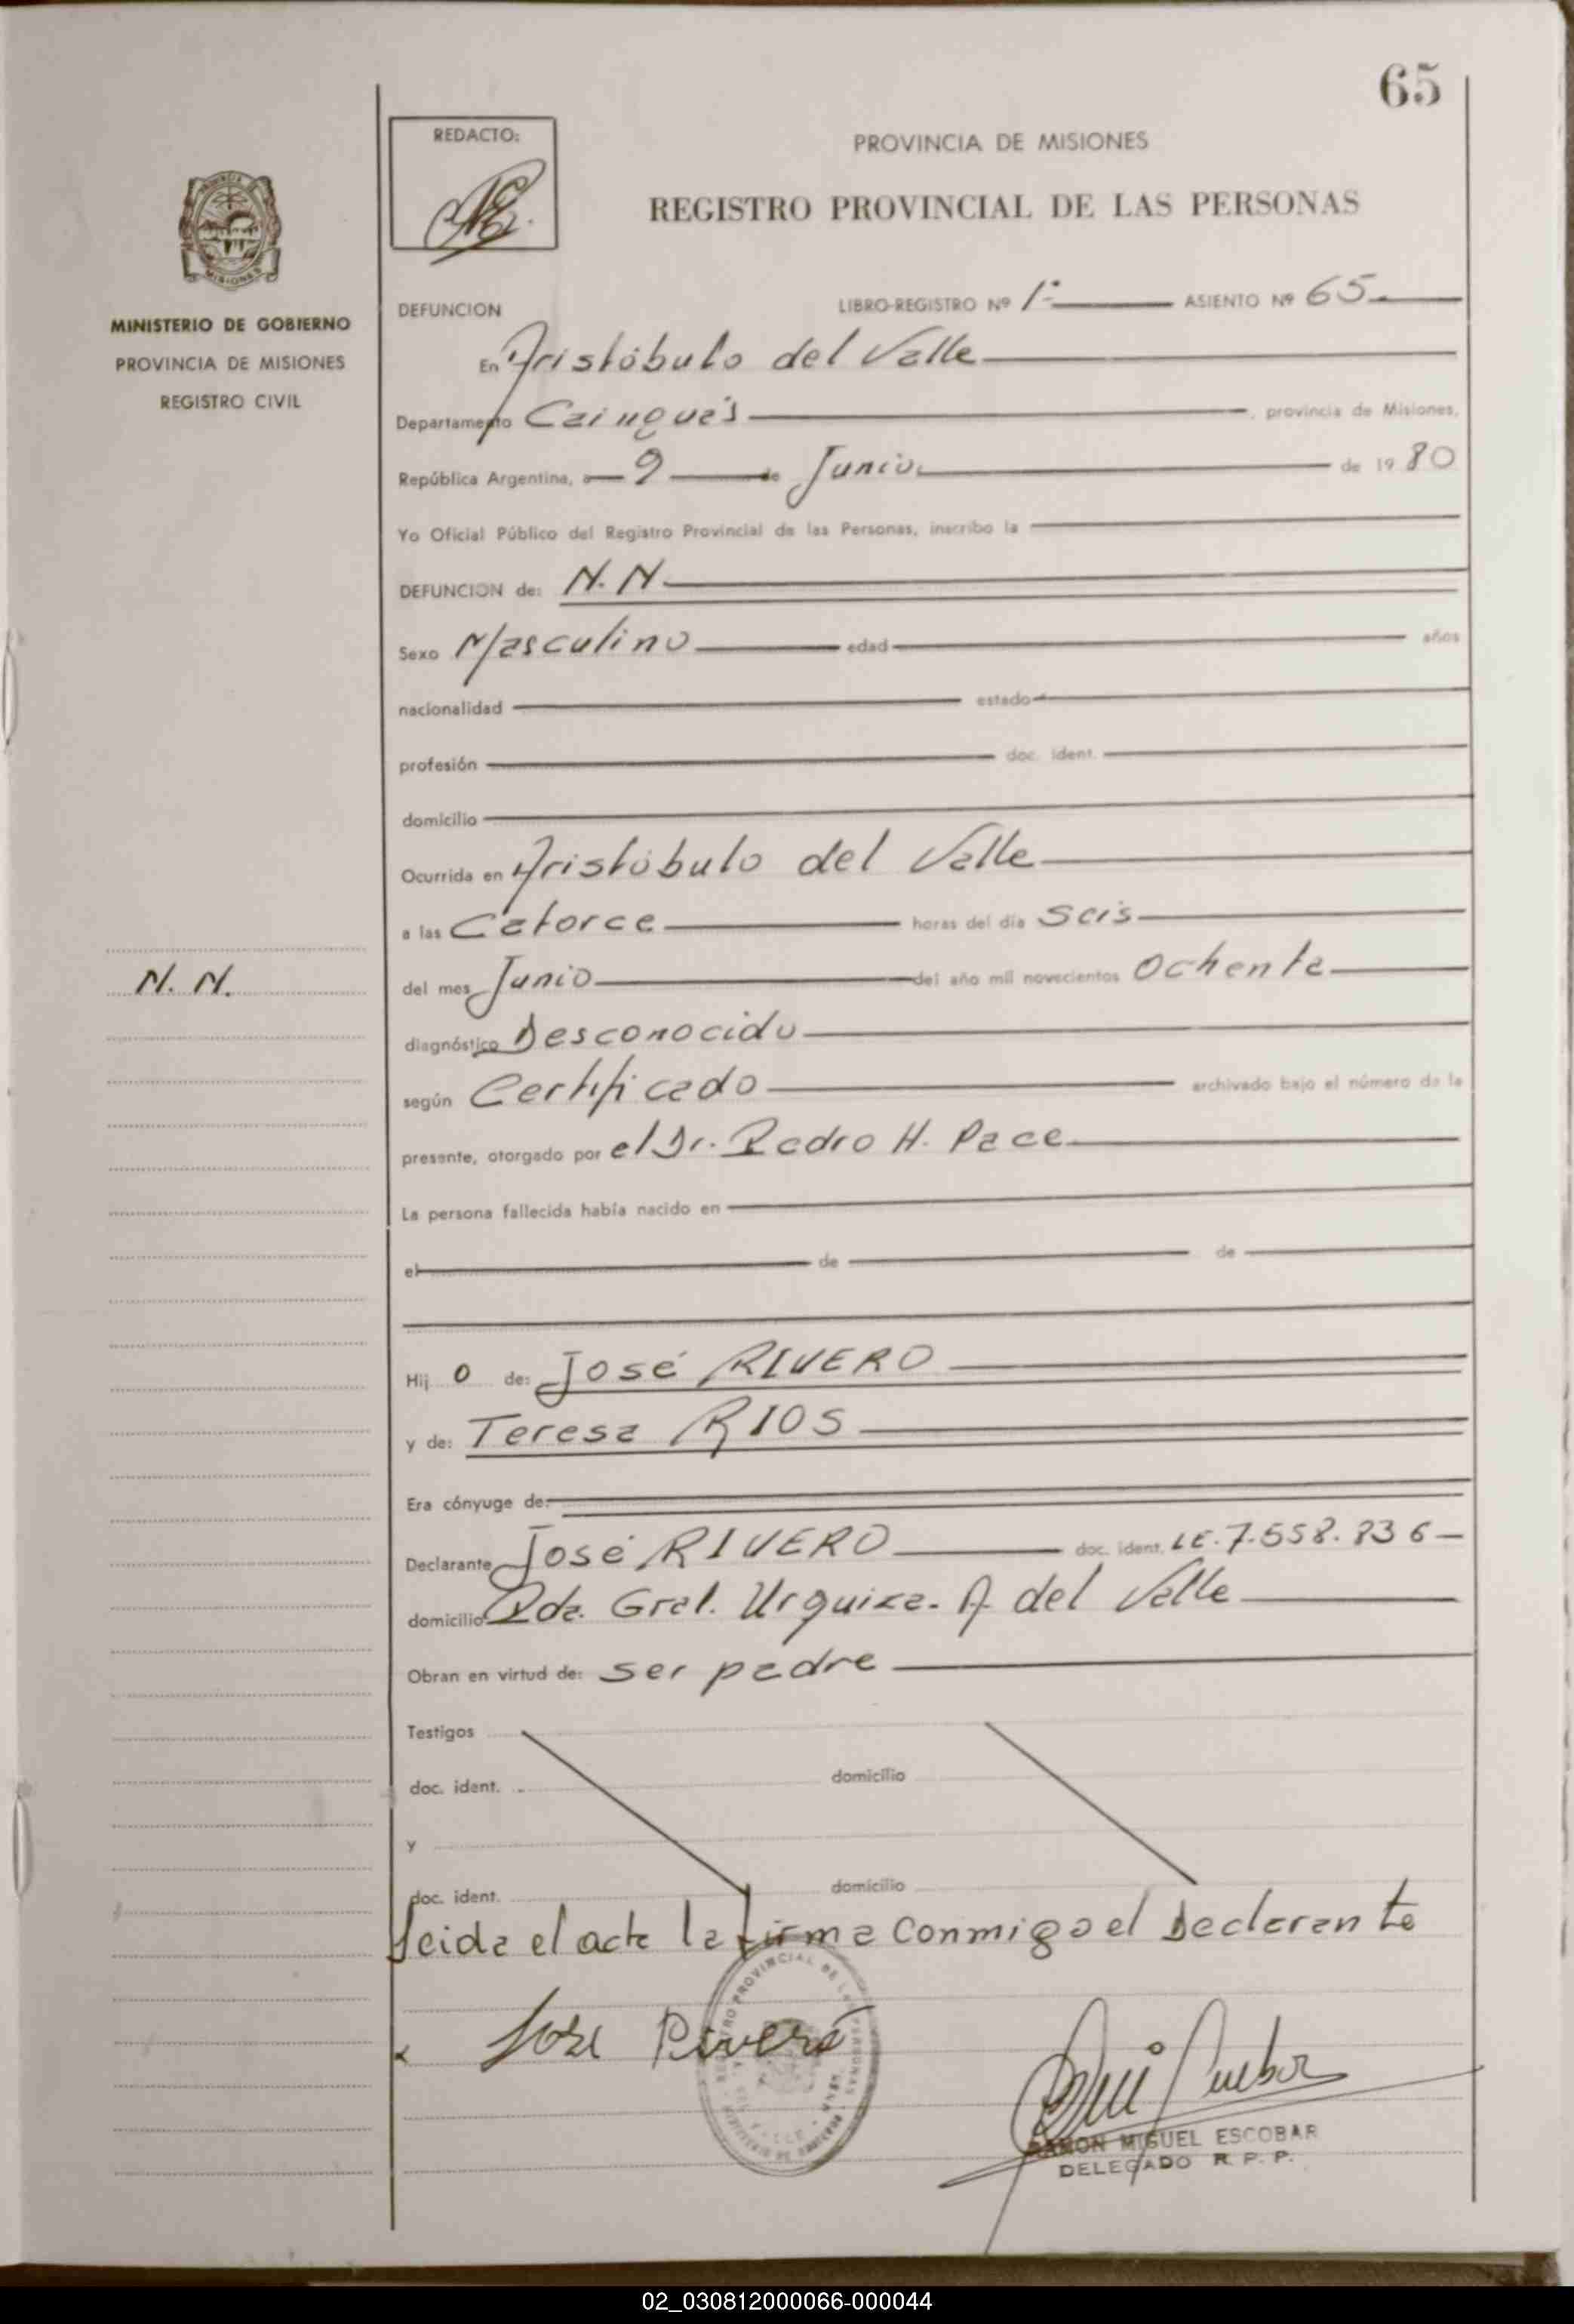 65
REDACTO:
PROVINCIA DE MISIONES
REGISTRO PROVINCIAL DE LAS PERSONAS
MISIONES
MINISTERIO DE GOBIERNO
PROVINCIA DE MISIONES
REGISTRO CIVIL
DEFUNCION LIBRO-REGISTRO Nº 1º ASIENTO Nº 65
En Aristóbulo del Valle
Departamento Cainguás, provincia de Misiones,
República Argentina, a 9 de Junio de 1980
Yo Oficial Público del Registro Provincial de las Personas, inscribo la
DEFUNCION de: N. N
Sexo Masculino edad años
nacionalidad estado
profesión doc. ident.
domicilio
Ocurrida en Aristóbulo del Valle
a las Catorce horas del día Seis
N. N.
del mes Junio del año mil novecientos Ochenta
diagnóstico Desconocido
según Certificado archivado bajo el número de la
presente, otorgado por el Dr. Pedro H. Pace
La persona fallecida había nacido en
el de de
Hij o de: José RIVERO
y de: Teresa RIOS
Era cónyuge de:
Declarante José RIVERO doc. ident. LE. 7.558.836
domicilio Pda. Gral. Urquiza. A del Valle
Obran en virtud de: ser padre
Testigos
doc. ident. domicilio
y
doc. ident. domicilio
Leida el acta la firma conmigo el Declarante
Jose Rivero
RAMON MIGUEL ESCOBAR
DELEGADO R. P. P.
02_030812000066-000044